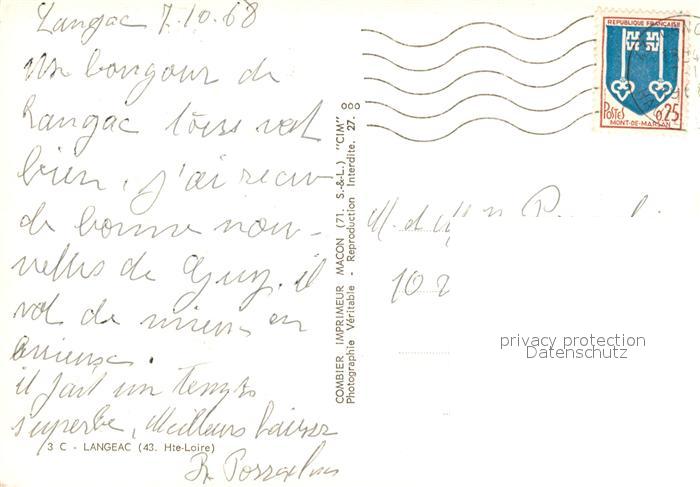 Langac 7.10.68
un bongour de
Langac tous vat
bien, j'ai recu
de bonne nou-
velles de Guy. il
vat de mieux en
mieux.
il fait un temps
superbe, Meilleurs baiser
3 C - LANGEAC (43. Hte-Loire)
COMBIER IMPRIMEUR MACON (71. S.-&-L.) "CIM"
Photographie Véritable - Reproduction Interdite. 27.
REPUBLIQUE FRANÇAISE
POSTES 0,25
MONT-DE-MARSAN
M. et
102
privacy protection
Datenschutz